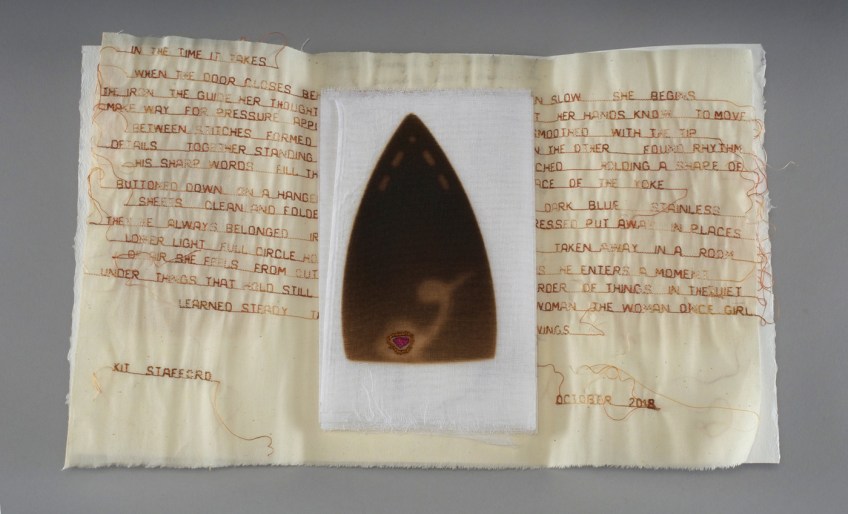 IN THE TIME IT TAKES
WHEN THE DOOR CLOSES
THE IRON THE GUIDE HER THOUGHT
MAKE WAY FOR PRESSURE
BETWEEN STITCHES FORMED
DETAILS TOGETHER STANDING
HIS SHARP WORDS FILL
BUTTONED DOWN ON A HANGER
SHEETS CLEAN AND FOLDE
ALWAYS BELONGED
LOWER LIGHT FULL CIRCLE
OF AIR SHE FEELS FROM
UNDER THINGS THAT HOLD STILL
LEARNED STEADY
KIT STAFFORD
N SLOW SHE BEGINS
HER HANDS KNOW TO MOVE
SMOOTHED WITH THE TIP
THE OTHER FOUND RHYTHM
CHED HOLDING A SHAPE OF
ACE OF THE YOKE
DARK BLUE STAINLESS
RESSED PUT AWAY IN PLACES
TAKEN AWAY IN A ROOM
HE ENTERS A MOMENT
RDER OF THINGS IN THE QUIET
WOMAN THE WOMAN ONCE GIRL
WINGS
OCTOBER 2018